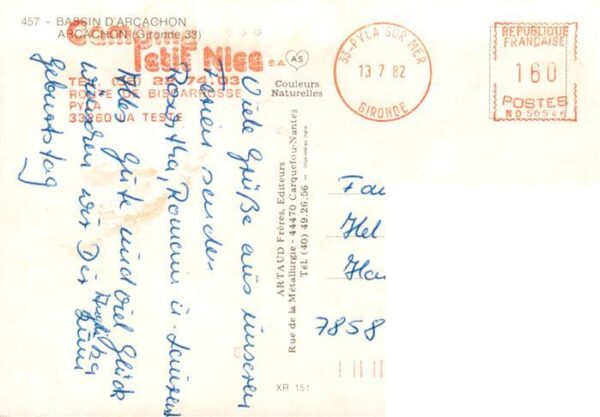 457 - BASSIN D'ARCACHON
ARCACHON (Gironde 33)
Camping
Petit Nice S.A.
TEL. 22.74.03
ROUTE DE BISCARROSSE
PYLA
33260 LA TESTE
AS
Couleurs
Naturelles
33-PYLA SUR MER
13 7 82
GIRONDE
REPUBLIQUE
FRANÇAISE
160
POSTES
ND 50546
Viele Grüße aus unseren
Ferien senden
Roswitha, u. Laurent
Alles Gute und viel Glück
wünschen wir Dir zum
Geburtstag
ARTAUD Frères, Editeurs
Rue de la Métallurgie - 44470 Carquefou-Nantes
Tél. (40) 49.26.56
Imprimé en France
Fa
Hel
Ha
7858
XR 151